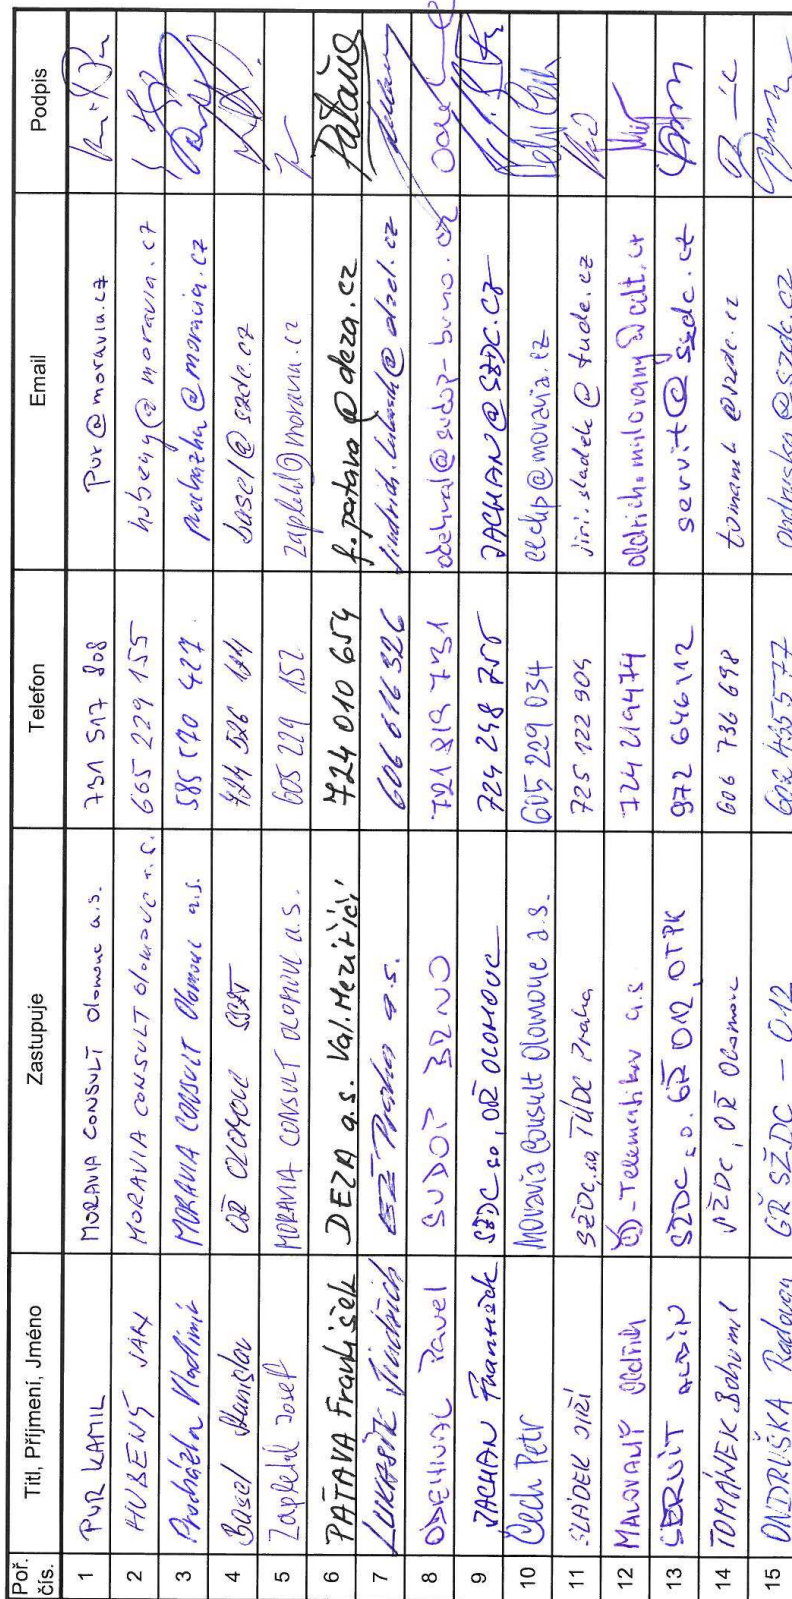 Poř. čís. Titl, Příjmení, Jméno Zastupuje Telefon Email Podpis
1 PUR KAMIL MORAVIA CONSULT Olomouc a.s. 731 517 808 pur@moravia.cz
2 HUBENÝ JAN MORAVIA CONSULT Olomouc a.s. 665 229 155 hubeny@moravia.cz
3 Procházka Vladimír MORAVIA CONSULT Olomouc a.s. 585 570 427 prochazka@moravia.cz
4 Basel Stanislav OŘ OLOMOUC 724 526 basel@szdc.cz
5 Zapletal Josef MORAVIA CONSULT OLOMOUC a.s. 605 229 152 zapletal@moravia.cz
6 PAŤAVA František DEZA a.s. Val. Meziříčí 724 010 654 f.patava@deza.cz Paťava
7 LUKAŠÍK Jindřich Praha a.s. 606 616 326
8 ODEHNAL Pavel SUDOP BRNO 721 819 731 odehnal@sudop-brno.cz
9 JACHAN František SŽDC so, OŘ OLOMOUC 724 248 755 JACHAN@SŽDC.CZ
10 Čech Petr Moravia Consult Olomouc a.s. 605 229 034 cechp@moravia.cz
11 SLÁDEK JIŘÍ SŽDC, so, TÚDC Praha 725 122 909 jiri.sladek@tudc.cz
12 MALOVANÝ Oldřich - Telematika a.s. 724 219474
13 SERVÍT SŽDC s.o. GŘ O12, OTPK 972 646 112 servit@szdc.cz
14 TOMÁNEK Bohumil SŽDC, OŘ Olomouc 606 736 698 tomanek@szdc.cz
15 ONDRUŠKA Radovan GŘ SŽDC - O12 ondruska@szdc.cz